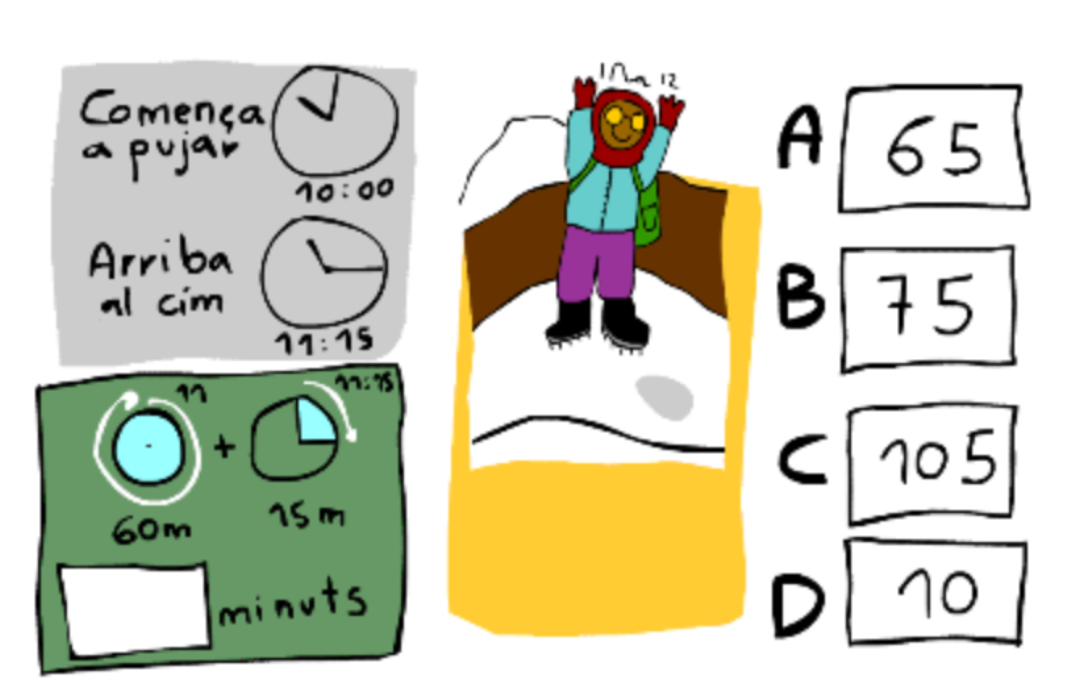 Comença
a pujar
10:00
Arriba
al cim
11:15
11
11:15
+
60m
15m
minuts
A
65
B
75
C
105
D
10